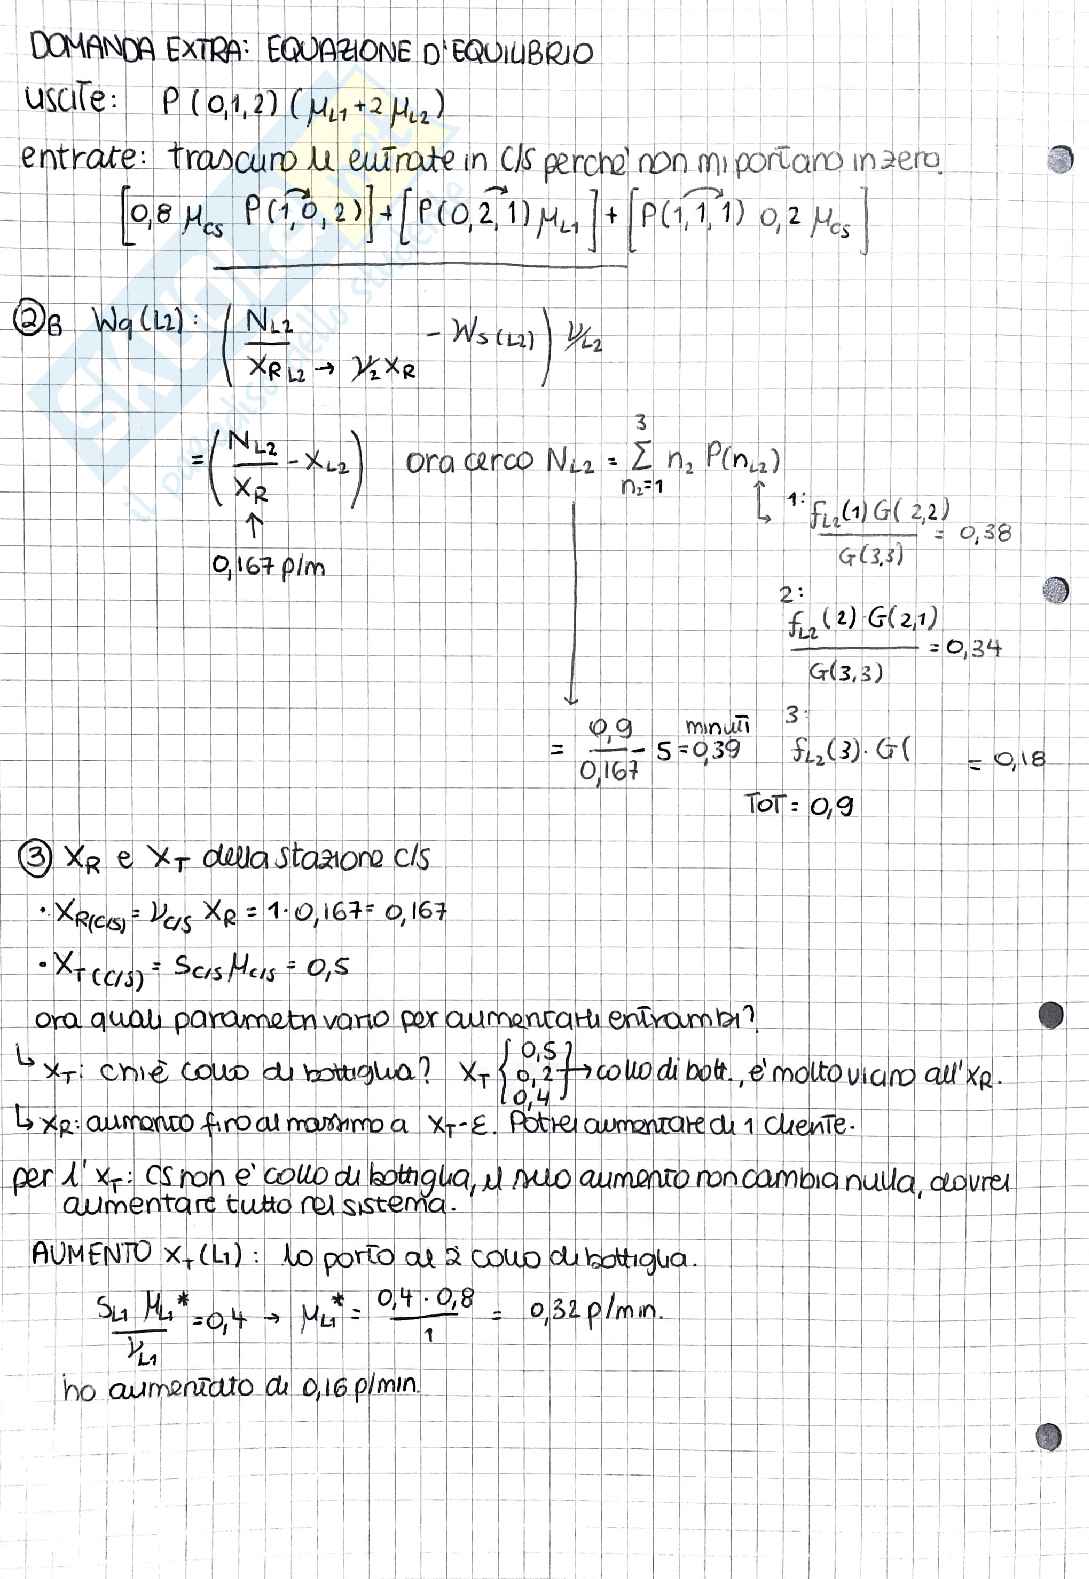 DOMANDA EXTRA: EQUAZIONE D'EQUILIBRIO
uscite: P(0,1,2)(μL1+2μL2)
entrate: trascuro le entrate in C/S perchè non mi portano in zero.
[0,8 μCS P(1,0,2)]+[P(0,2,1)μL1]+[P(1,1,1) 0,2 μCS]
②B Wq(L2): (NL2/XRL2 → V2XR - Ws(L2)) VL2
=(NL2/XR - XL2) ora cerco NL2 = Σ n2 P(nL2)
3
n2=1
0,167 p/m
1: fL2(1)G(2,2)/G(3,3) = 0,38
2: fL2(2)·G(2,1)/G(3,3) = 0,34
3: fL2(3)·G( = 0,18
= 0,9/0,167 - 5 = 0,39 minuti
TOT = 0,9
③ XR e XT della stazione C/S
· XR(C/S) = VC/S XR = 1·0,167 = 0,167
· XT(C/S) = SC/S μC/S = 0,5
ora quali parametri vario per aumentarli entrambi?
↳ XT: chi è collo di bottiglia? XT {0,5 0,2 0,4} → collo di bott., è molto vicino all'XR.
↳ XR: aumento fino al massimo a XT-ε. Potrei aumentare di 1 cliente.
per l'XT: CS non è collo di bottiglia, il suo aumento non cambia nulla, dovrei
aumentare tutto nel sistema.
AUMENTO XT(L1): lo porto al 2° collo di bottiglia.
SL1 μL1*/VL1 = 0,4 → μL1* = 0,4·0,8/1 = 0,32 p/min.
ho aumentato di 0,16 p/min.